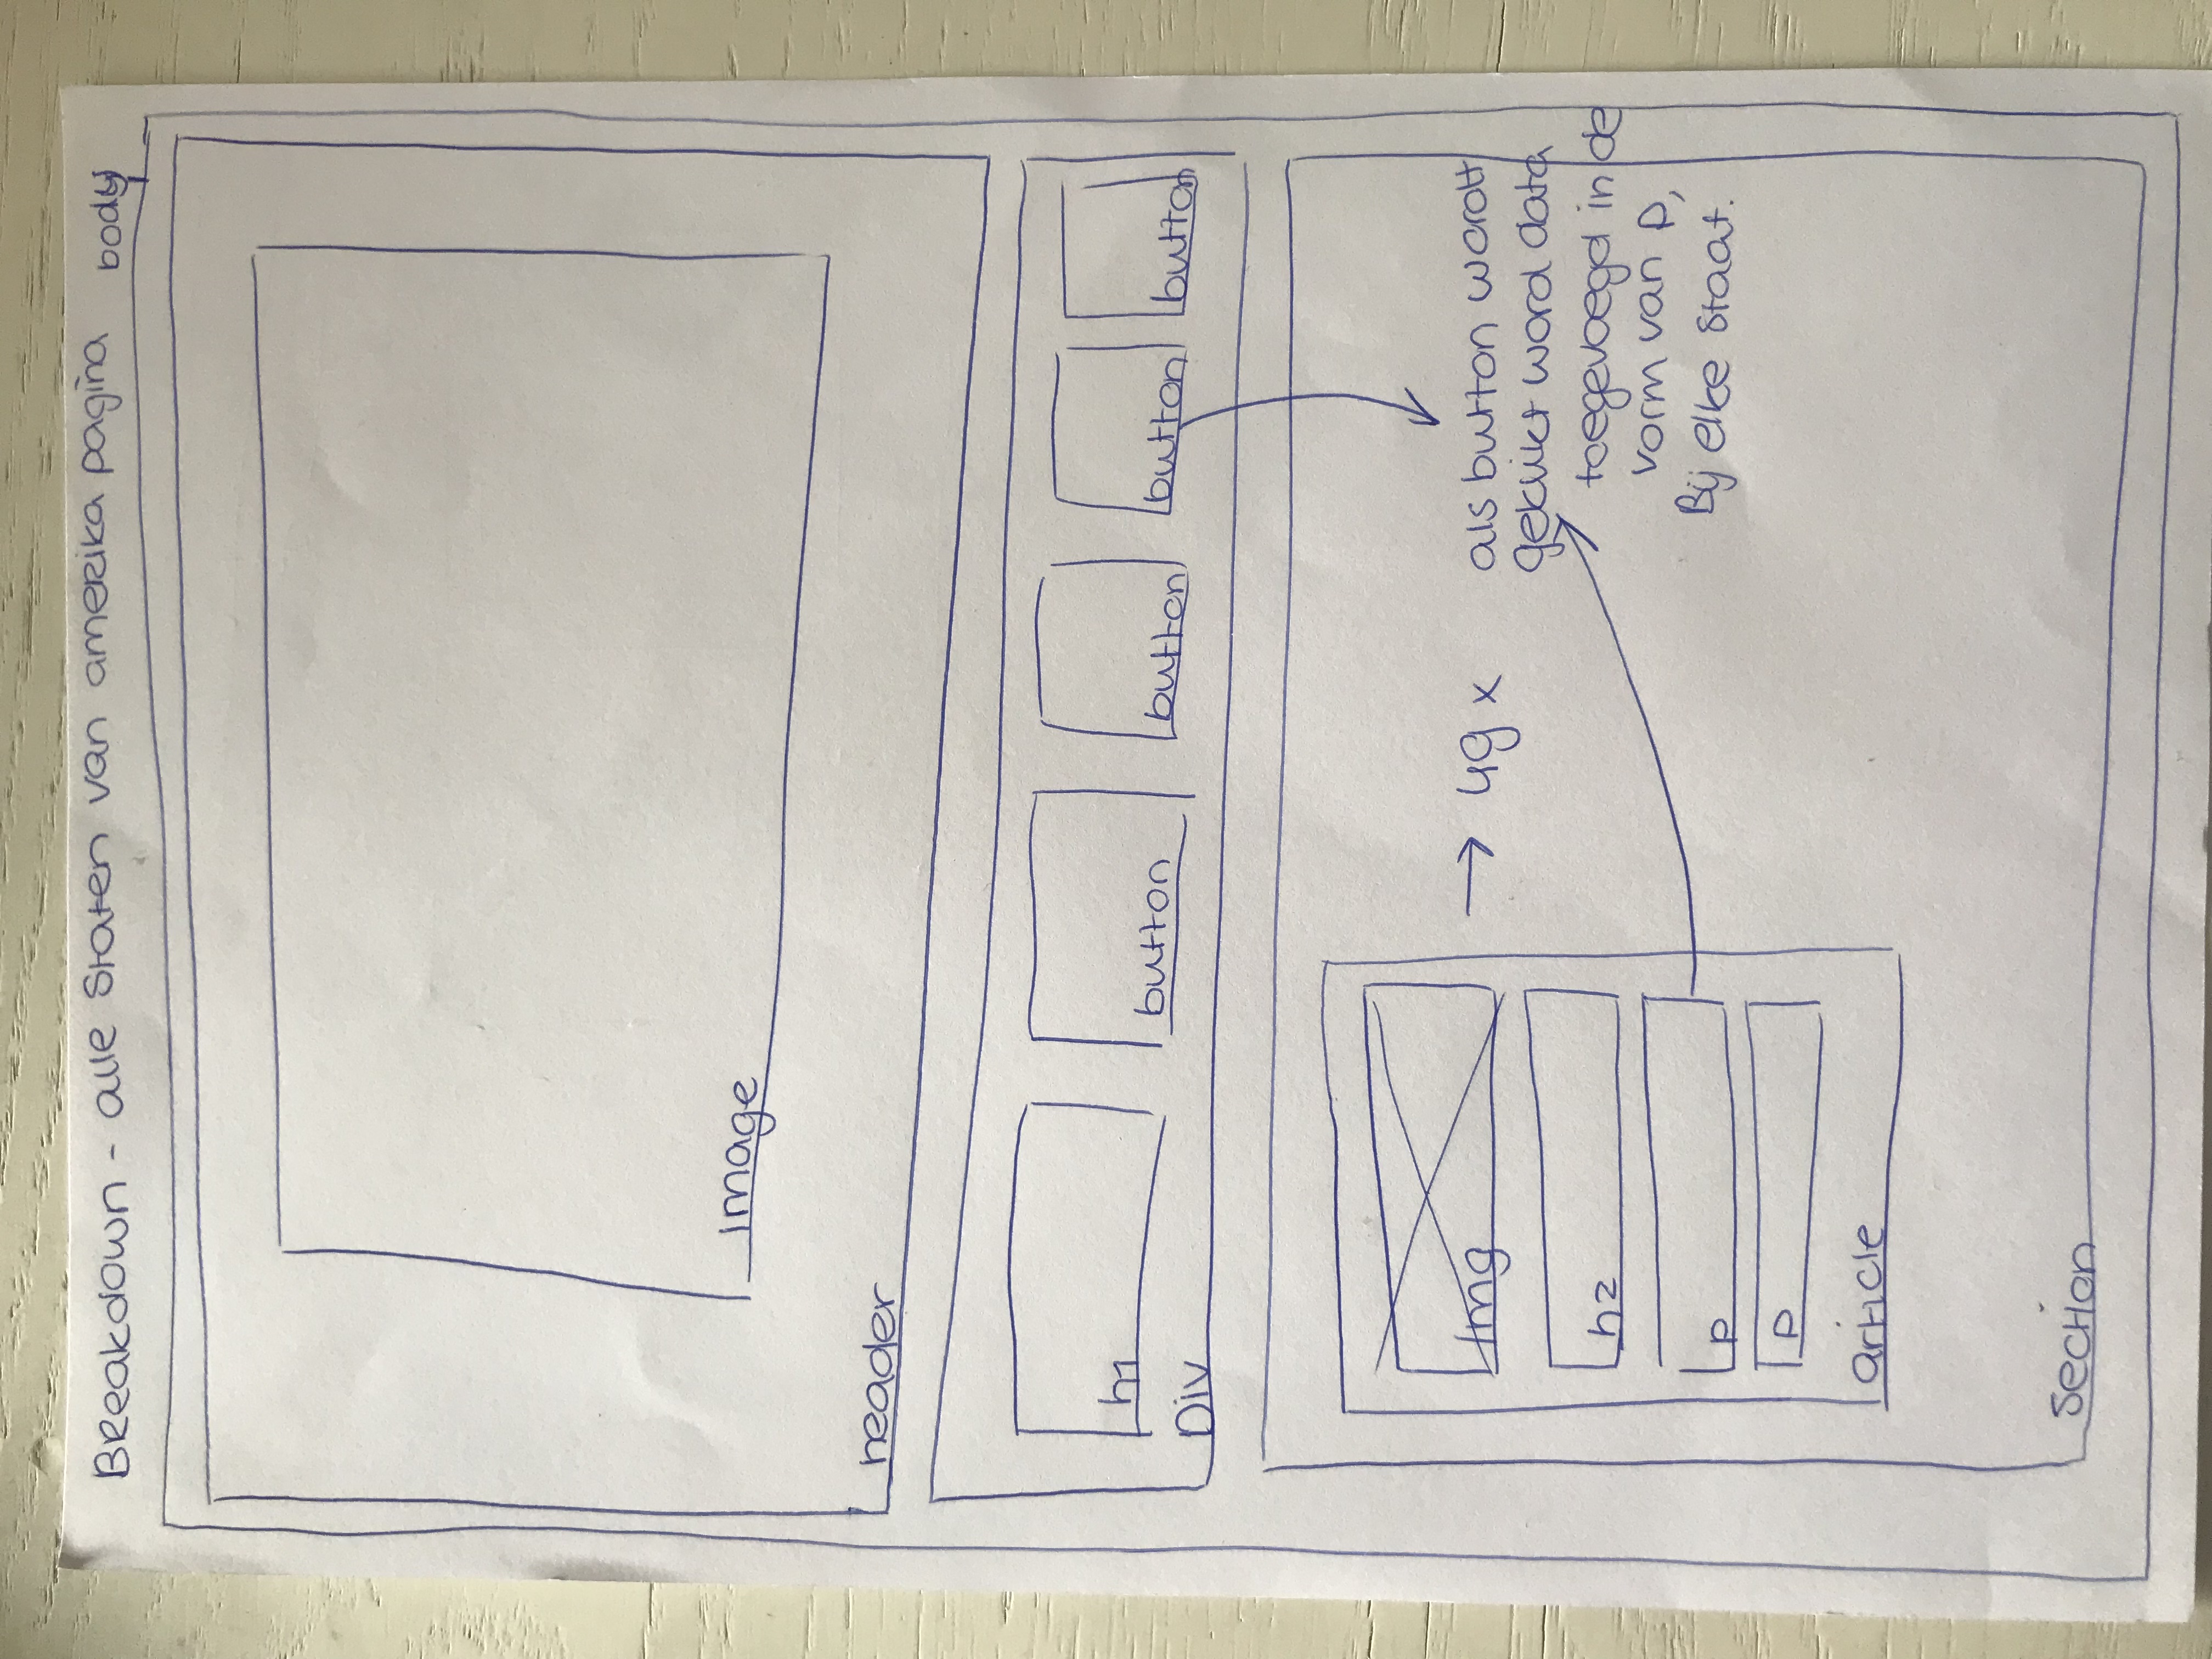 Breakdown - alle staten van amerika pagina
body
image
header
h1
button
button
button
button
Div
img
h2
p
p
article
→ 49 x
als button wordt
geklikt word data
toegevoegd in de
vorm van p,
Bij elke staat.
section